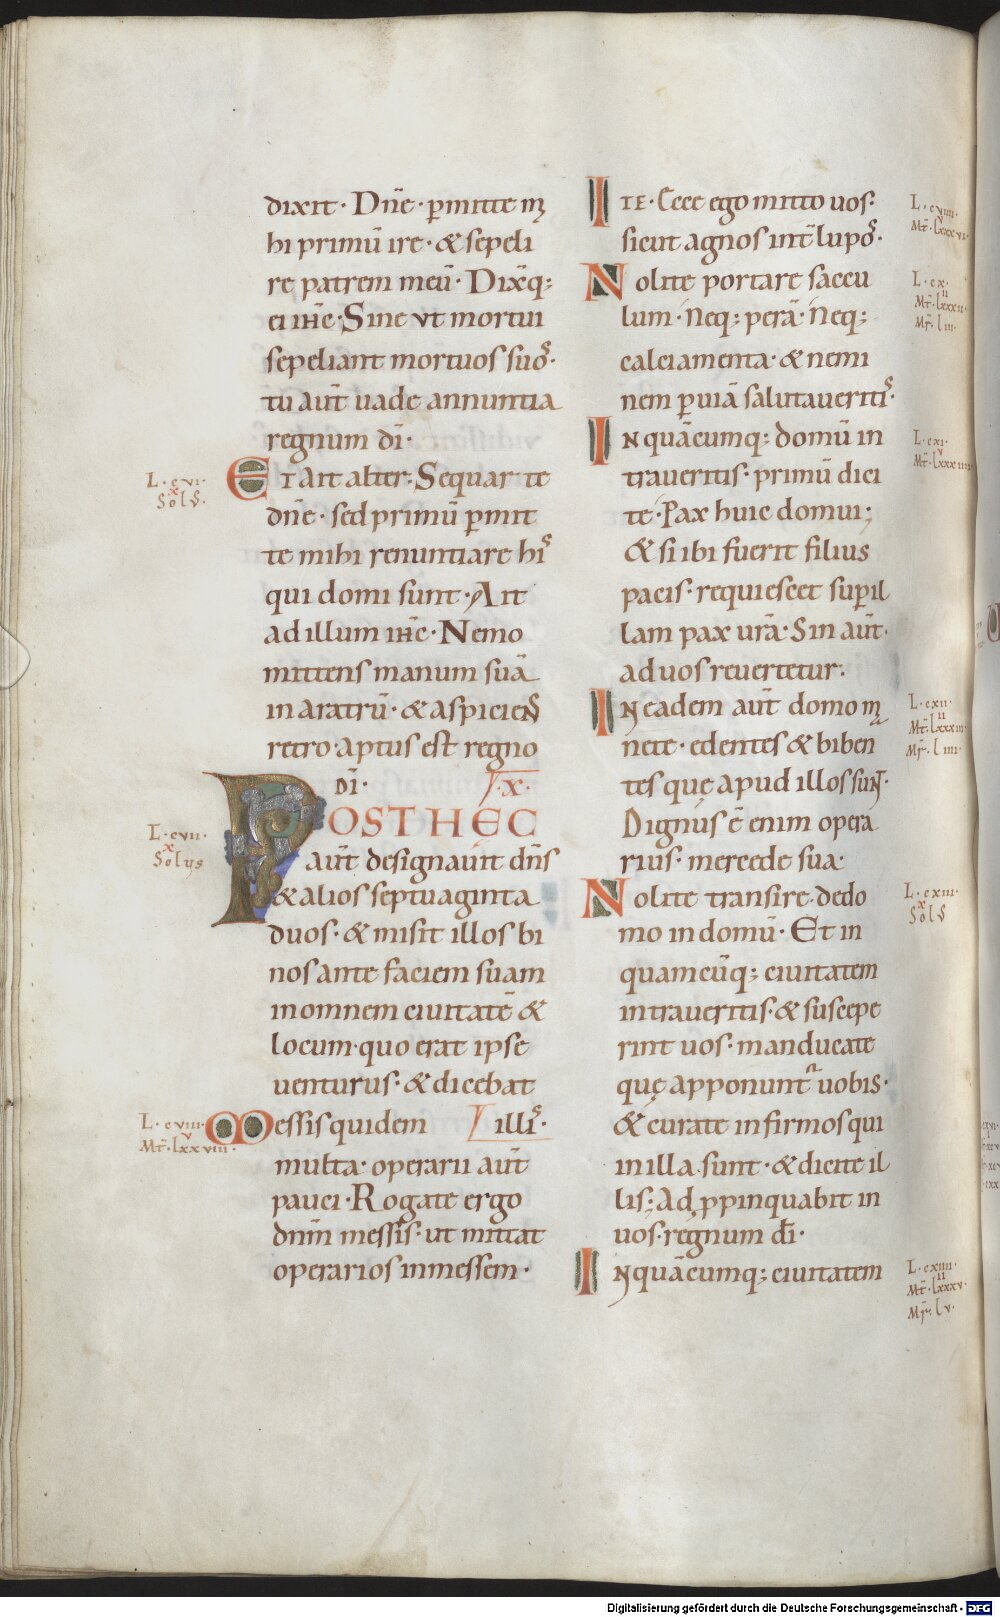 dixit· Dn̄e· ꝑmitte m
hi primū ire· & sepeli
re patrem meū· Dixq̄;
ei ih̄c· Sine ut mortui
sepeliant mortuos suoˢ·
tu aūt uade annuntia
regnum dī·
L·cvi·
x
Solꝰ·
Et Ait alter: Sequar te
dn̄e· sed primū ꝑmit
te mihi renuntiare hiˢ
qui domi sunt· Ait
ad illum ih̄c· Nemo
mittens manum suā
in aratrū· & aspiciens
retro· aptus est regno
dī·
·X·
L·cvii·
x
Solus
POST HEC
aūt designauit dn̄s
& alios septuaginta
duos· & misit illos bi
nos ante faciem suam
in omnem ciuitatē &
locum· quo erat ipse
uenturus· & dicebat
illiˢ·
L·cviii·
v
Mt̄·lxxviii·
Messis quidem
multa· operarii aūt
pauci· Rogate ergo
dn̄m messis· ut mittat
operarios in messem·
Ite· Ecce ego mitto uos·
sicut agnos int̄ lupoˢ·
L·cviiii·
v
Mt̄·lxxxvi·
Nolite portare saccu
lum· neq; perā· neq;
calciamenta· & nemi
nem ꝑ uiā salutaueritiˢ·
L·cx·
ii
Mt̄·lxxxii·
Mr̄·liii·
In quācumq; domū in
traueritis· primū dici
te· Pax huic domui;
& si ibi fuerit filius
pacis· requiescet suꝑ il
lam pax ur̄a· Sin aūt·
ad uos reuertetur·
L·cxi·
v
Mt̄·lxxxiiii·
In eadem aūt domo m
nete· edentes & biben
tes quę apud illos sunt·
Dignus ē enim opera
rius· mercede sua·
L·cxii·
ii
Mt̄·lxxxiii·
Mr̄·liiii·
Nolite transire· de do
mo in domū· Et in
quamcūq; ciuitatem
intraueritis· & suscepe
rint uos· manducate
quę apponunt̉ uobis·
& curate infirmos qui
in illa sunt· & dicite il
lis; Adꝓpinquabit in
uos· regnum dī·
L·cxiii·
x
Solꝰ
In quācumq; ciuitatem
L·cxiiii·
ii
Mt̄·lxxxv·
Mr̄·lv·
Digitalisierung gefördert durch die Deutsche Forschungsgemeinschaft - DFG